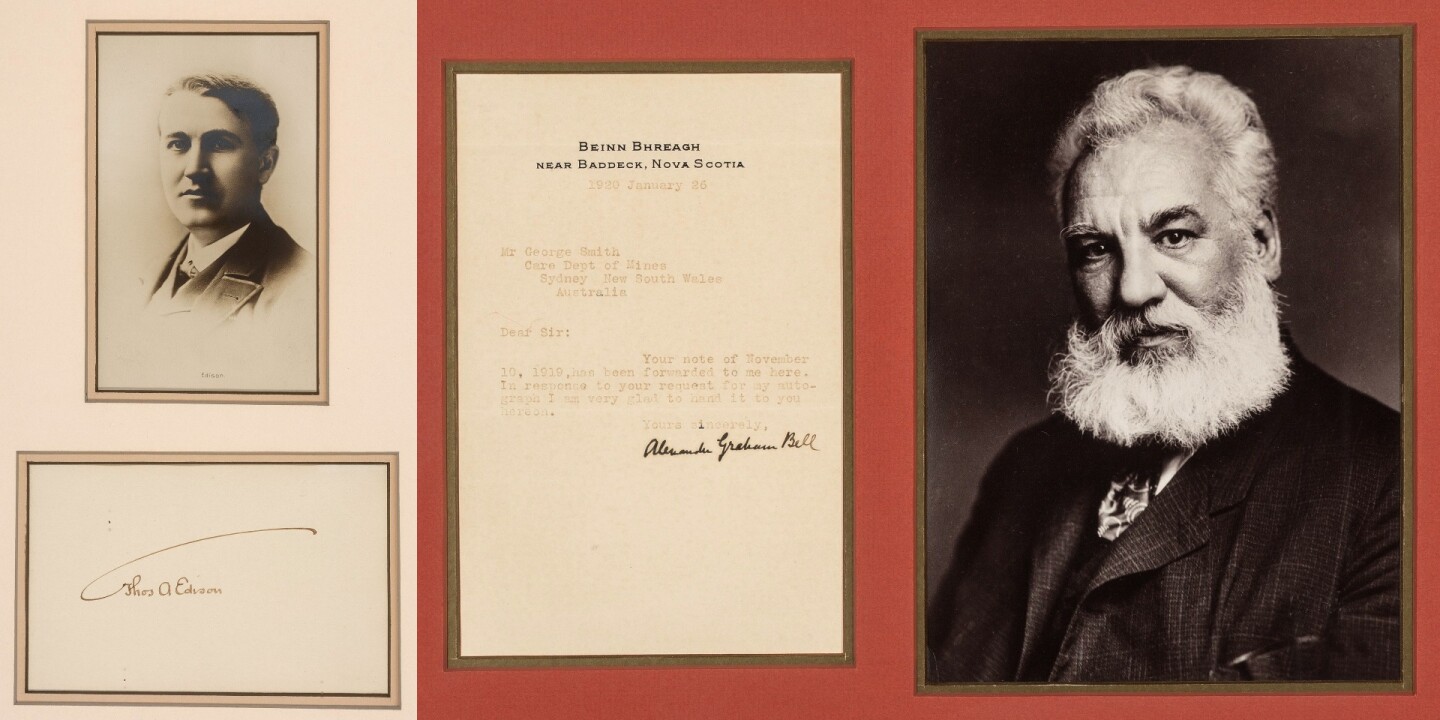 Edison
Thos A Edison
BEINN BHREAGH
NEAR BADDECK, NOVA SCOTIA
1920 January 26
Mr George Smith
Care Dept of Mines
Sydney New South Wales
Australia
Dear Sir:
Your note of November
10, 1919,has been forwarded to me here.
In response to your request for my auto-
graph I am very glad to hand it to you
hereon.
Yours sincerely,
Alexander Graham Bell